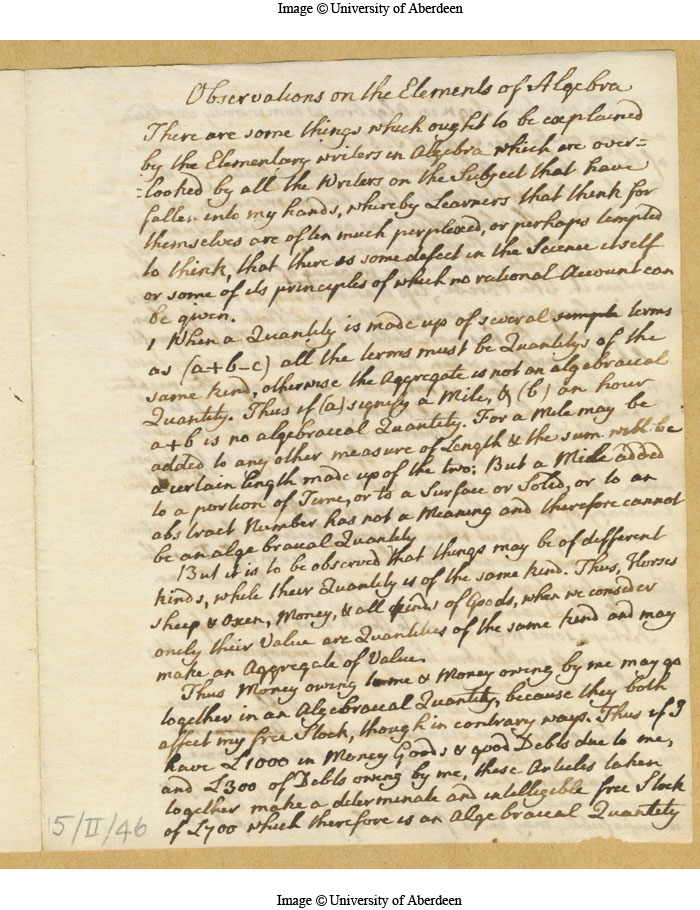 Image © University of Aberdeen
Observations on the Elements of Algebra
There are some things which ought to be explained
by the Elementary writers in Algebra which are over=
=looked by all the Writers on the Subject that have
fallen into my hands, whereby Learners that think for
themselves are often much perplexed, or perhaps tempted
to think, that there is some defect in the Science itself
or some of its principles of which no rational Account can
be given.
1 When a Quantity is made up of several simple terms
as (a+b-c) all the terms must be Quantitys of the
same kind, otherwise the Aggregate is not an algebraical
Quantity. Thus if (a) signify a Mile, & (b) an hour
a+b is no algebraical Quantity. For a Mile may be
added to any other measure of Length & the sum will be
a certain length made up of the two; But a Mile added
to a portion of Time, or to a Surface or Solid, or to an
abstract Number has not a Meaning and therefore cannot
be an algebraical Quantity
But it is to be observed that things may be of different
kinds, while their Quantity is of the same kind. Thus, Horses
sheep & Oxen, Money, & all kinds of Goods, when we consider
onely their Value are Quantities of the same kind and may
make an Aggregate of Value.
Thus Money owing to me & Money owing by me may go
together in an Algebraical Quantity, because they both
affect my free Stock, though in contrary ways. Thus if I
have £1000 in Money Goods & good Debts due to me,
and £300 of Debts owing by me, these Articles taken
together make a determinate and intelligible free Stock
of £700 which therefore is an Algebraical Quantity
5/II/46
Image © University of Aberdeen